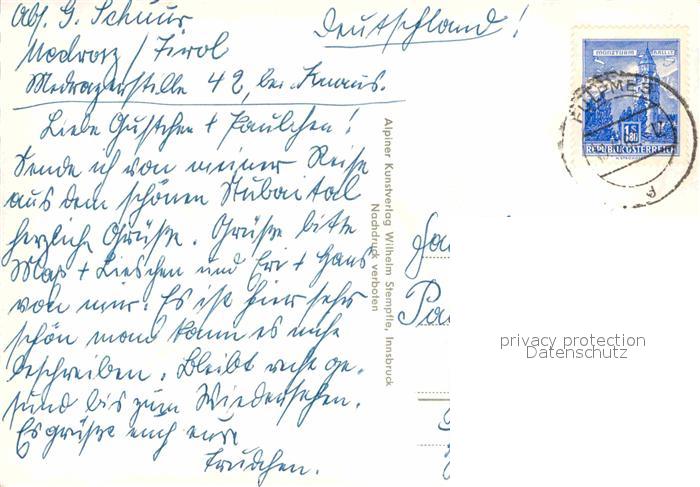 Abs. G. Schuur
Medraz / Tirol
Medrazerstille 42, bei Knaus.
Deutschland!
Liebe Gustchen + Paulchen!
Sende ich von meiner Reise
aus dem schönen Stubaital
herzliche Grüße. Grüße bitte
Max + Lieschen und Eri + Hans
von mir. Es ist hier sehr
schön man kann es nicht
beschreiben. Bleibt recht ge-
sund bis zum Wiedersehen.
Es grüßt euch eure
Trudchen.
Alpiner Kunstverlag Wilhelm Stempfle, Innsbruck
Nachdruck verboten
MÜNZTURM HALL I.T.
FULPMES
REPUBLIK ÖSTERREICH
Pa
privacy protection
Datenschutz